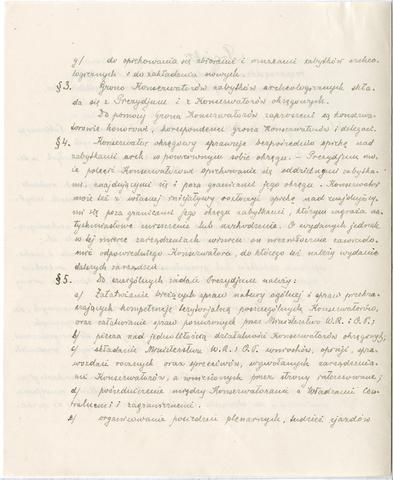 g/ do opiekowania się zbiorami i muzeami zabytków archeo-
logicznych i do zakładania nowych.
§3. Grono Konserwatorów zabytków archeologicznych skła-
da się z Prezydjum i z Konserwatorów okręgowych.
Do pomocy Grona Konserwatorów zaproszeni są konserwa-
torowie honorowi, korespondenci Grona Konserwatorów i delegaci.
§4. Konserwator okręgowy sprawuje bezpośrednio opiekę nad
zabytkami arch. w powierzonym sobie okręgu. - Prezydjum mo-
że polecić Konserwatorowi opiekowanie się oddzielnymi zabytka-
mi, znajdującymi się i poza granicami jego okręgu. - Konserwator
może też z własnej inicjatywy roztoczyć opiekę nad znajdujący-
mi się poza granicami jego okręgu zabytkami, którym zagraża na-
tychmiastowe zniszczenie lub uszkodzenie. O wydanych jednak
w tej mierze zarządzeniach winien on niezwłocznie zawiado-
mić odpowiedniego Konserwatora, do którego też należy wydanie
dalszych zarządzeń.
§5. Do szczególnych zadań Prezydjum należy:
a) Załatwianie bieżących spraw natury ogólnej i spraw przekra-
czających kompetencję terytorjalną poszczególnych Konserwatorów,
oraz załatwianie spraw poruczonych przez Ministerstwo W.R. i O.P.;
b) piecza nad jednolitością działalności Konserwatorów okręgowych;
c) składanie Ministerstwu W.R. i O.P. wniosków, opinji, spra-
wozdań rocznych oraz sprzeciwów, wywołanych zarządzenia-
mi Konserwatorów, a wniesionych przez strony interesowane;
d) pośredniczenie między Konserwatorami a Władzami Cen-
tralnemi i zagranicznemi.
e) organizowanie posiedzeń plenarnych, tudzież zjazdów